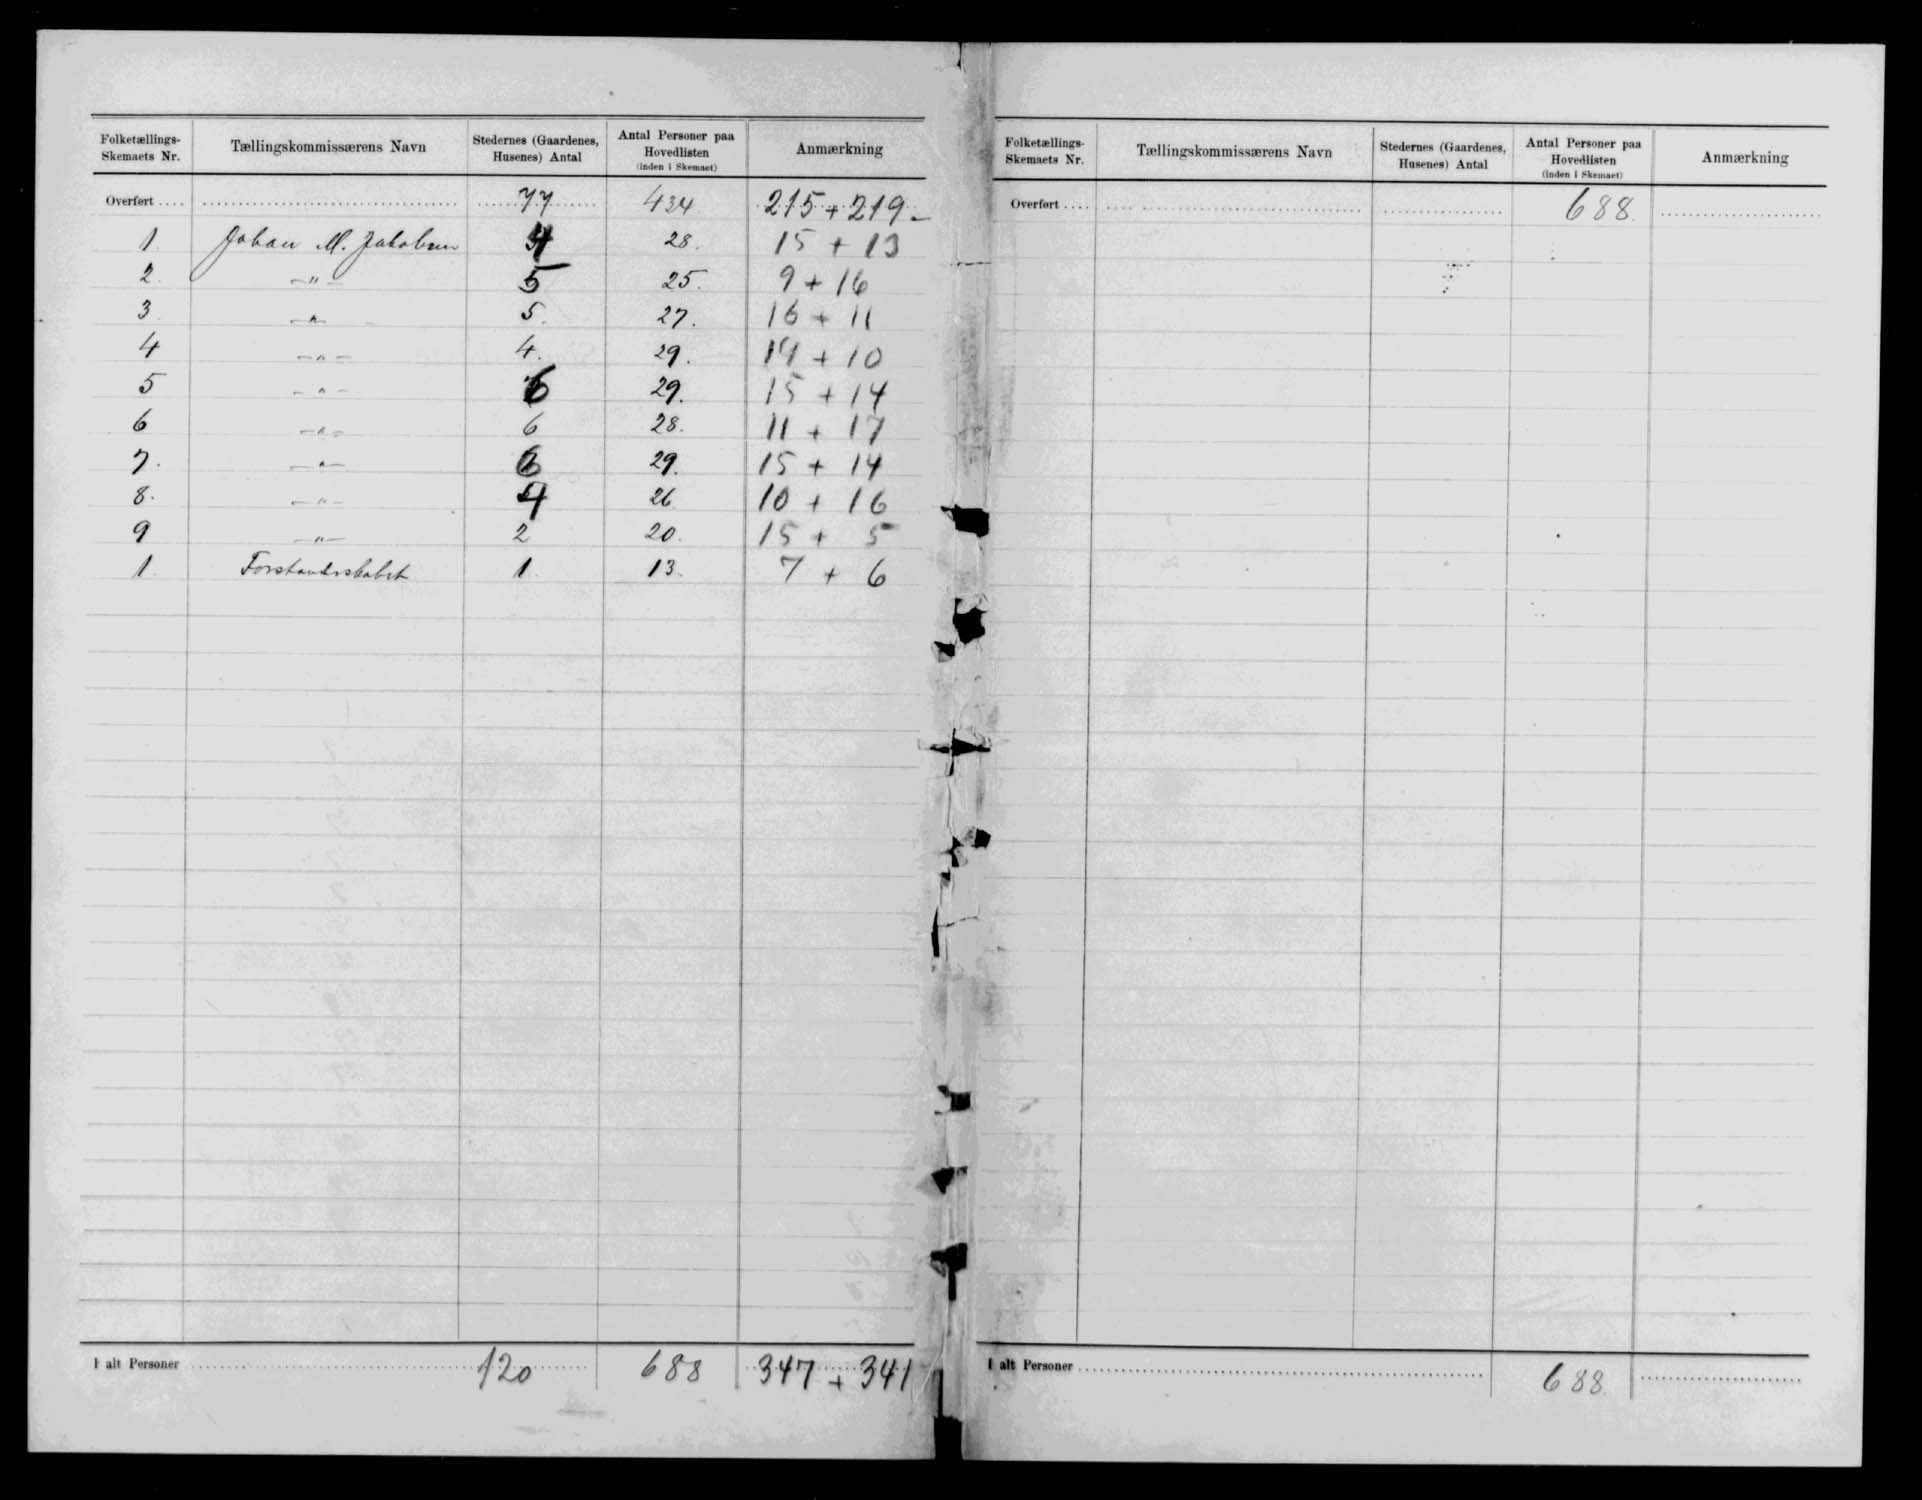 Folketællings-Skemaets Nr. Tællingskommissærens Navn Stedernes (Gaardenes, Husenes) Antal Antal Personer paa Hovedlisten (inden i Skemaet) Anmærkning
Overført .... 77 434 215 + 219
1. Johan M. Jakobsen 4 28. 15 + 13
2. —"— 5 25. 9 + 16
3 —"— 5. 27. 16 + 11
4 —"— 4. 29. 19 + 10
5 —"— 6 29. 15 + 14
6 —"— 6 28. 11 + 17
7. —"— 6 29. 15 + 14
8. —"— 4 26 10 + 16
9 —"— 2 20. 15 + 5
1. Forstanderskabet 1. 13. 7 + 6
I alt Personer 120 688 347 + 341
Folketællings-Skemaets Nr. Tællingskommissærens Navn Stedernes (Gaardenes, Husenes) Antal Antal Personer paa Hovedlisten (inden i Skemaet) Anmærkning
Overført .... 688.
I alt Personer 688